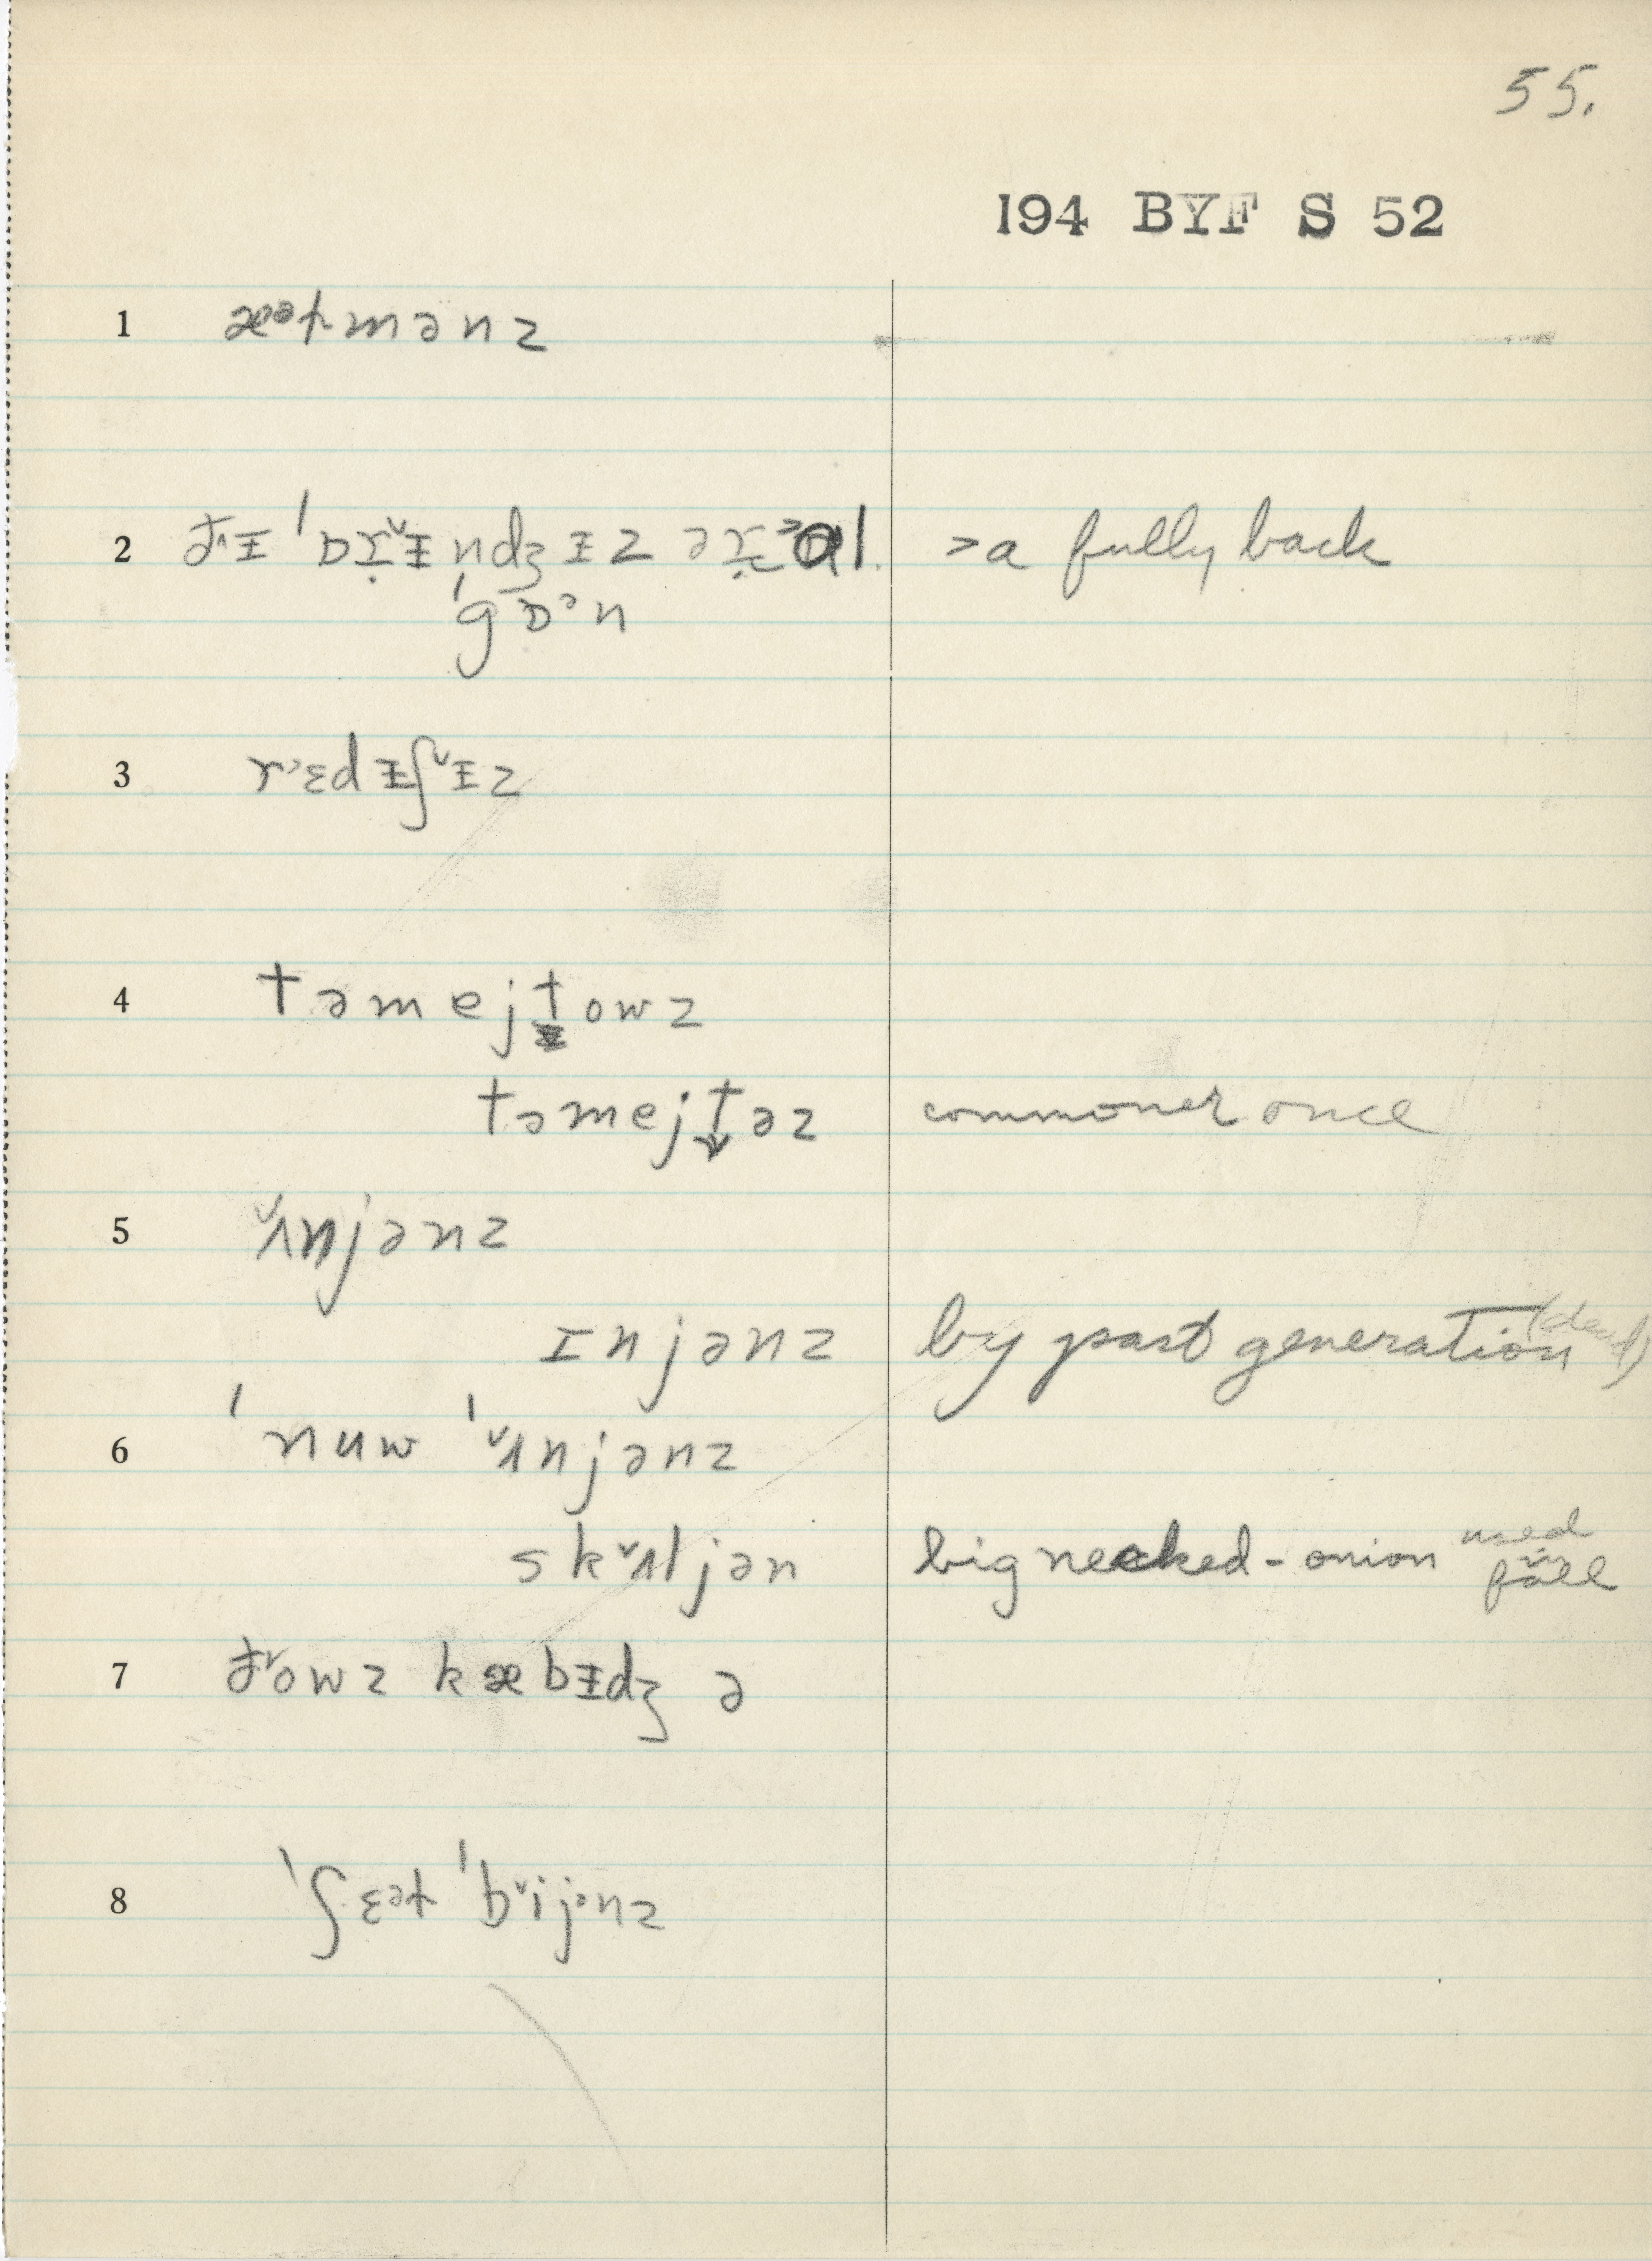 55.
194 BYF S 52
1 æᵊɫmənz
2 ð˄ᵻ ˈɒṛ˅ᵻndʒᵻz əṛ˃ɑl. >a fully back
ˈgɒᵊn
3 r˒ɛdᵻʃ˅ᵻz
4 təmejt̬owz
təmejt̬əz commoner once
5 ˅ʌnjənz
ɪnjənz by past generation (dead)
6 ˈnuw ˈ˅ʌnjənz
sk˅ʌljən big necked-onion used in fall
7 ð˅owz kæbᵻdʒ ə
8 ˈʃɛᵊɫ ˈb˅ijᵊnz